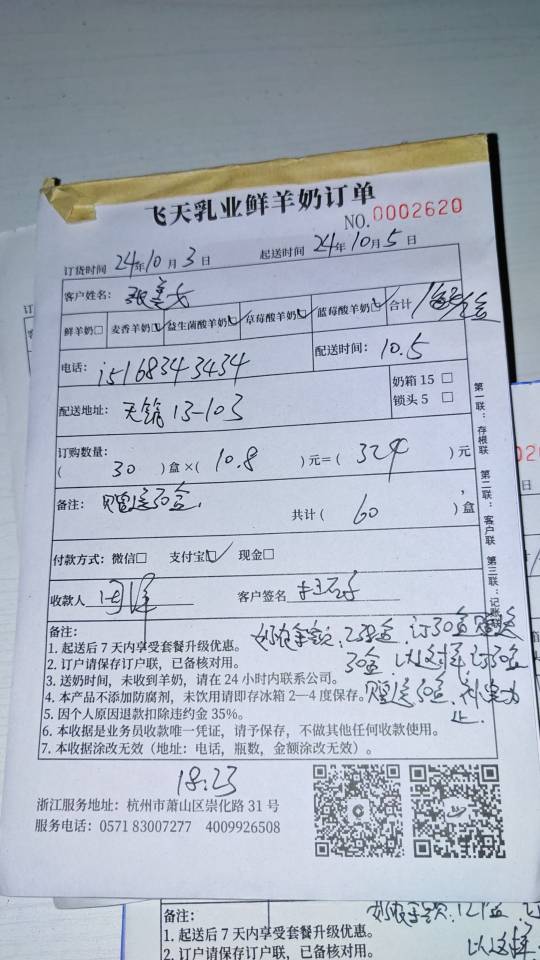 飞天乳业鲜羊奶订单
NO.0002620
订货时间 24年10月3日 起送时间 24年10月5日
客户姓名:
鲜羊奶□ 麦香羊奶☑ 益生菌酸羊奶☑ 草莓酸羊奶☑ 蓝莓酸羊奶☑ 合计
电话: 15168343434 配送时间: 10.5
奶箱 15 □
锁头 5 □
配送地址: 13-103
订购数量:
( 30 )盒×( 10.8 )元=( 324 )元
备注: 赠送30盒. 共计( 60 )盒
付款方式: 微信□ 支付宝☑ 现金□
收款人 客户签名
第一联:存根联 第二联:客户联 第三联:记账联
备注:
1. 起送后 7 天内享受套餐升级优惠。
订30盒赠送
2. 订户请保存订户联,已备核对用。
30盒, 以这样订30盒
3. 送奶时间,未收到羊奶,请在 24 小时内联系公司。
4. 本产品不添加防腐剂,未饮用请即存冰箱 2—4 度保存。
赠送30盒,
止.
5. 因个人原因退款扣除违约金 35%。
6. 本收据是业务员收款唯一凭证,请予保存,不做其他任何收款使用。
7. 本收据涂改无效(地址:电话,瓶数,金额涂改无效)。
18:23
浙江服务地址:杭州市萧山区崇化路 31 号
服务电话:0571 83007277 4009926508
备注:
1. 起送后 7 天内享受套餐升级优惠。
2. 订户请保存订户联,已备核对用。
以这样